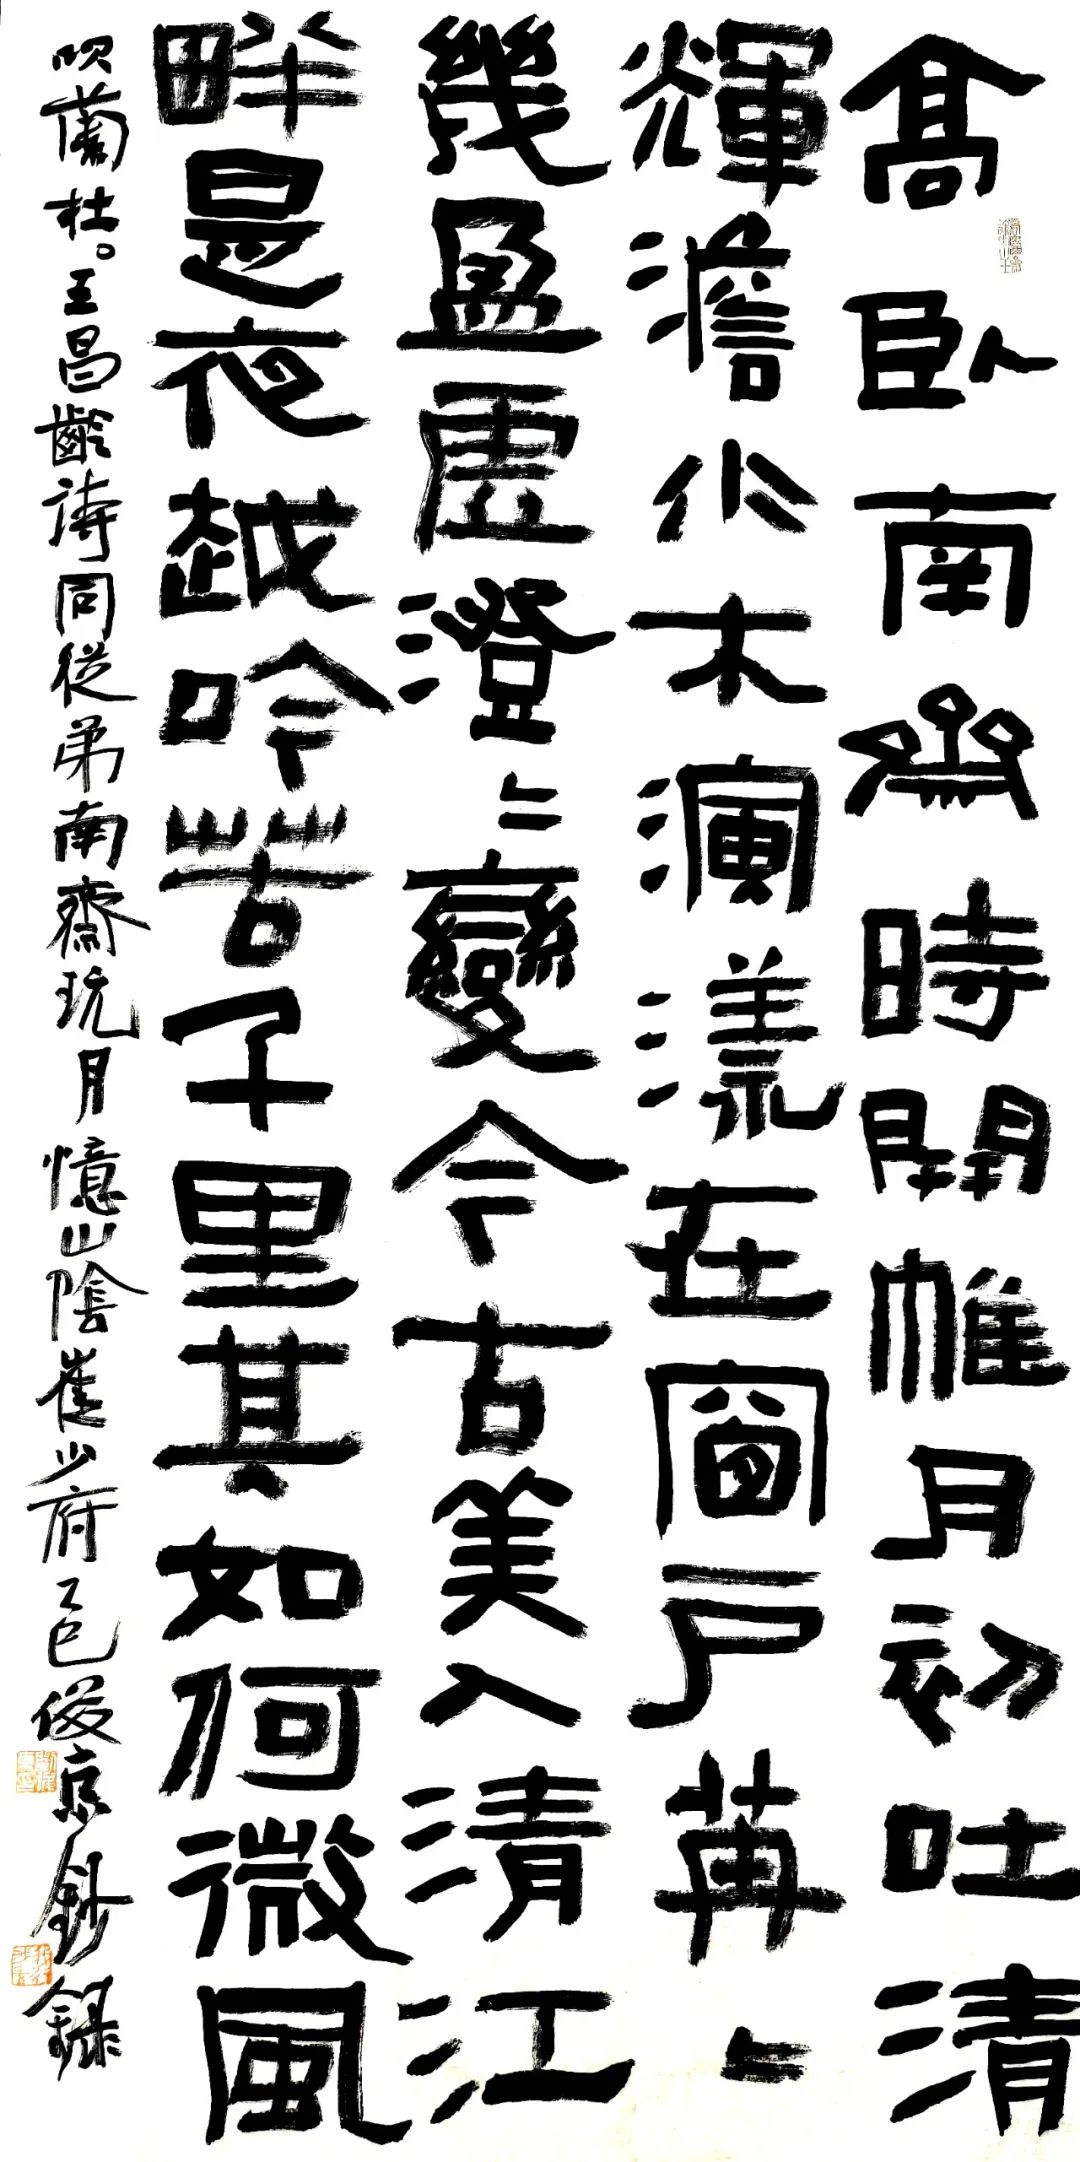 高臥南齋時開帷月初吐清
輝澹水木演漾在窗戶苒〻
幾盈虛澄〻變今古美人清江
畔是夜越吟苦千里其如何微風
吹蘭杜。王昌齡詩同從弟南齋玩月憶山陰崔少府乙巳俊京鈔錄